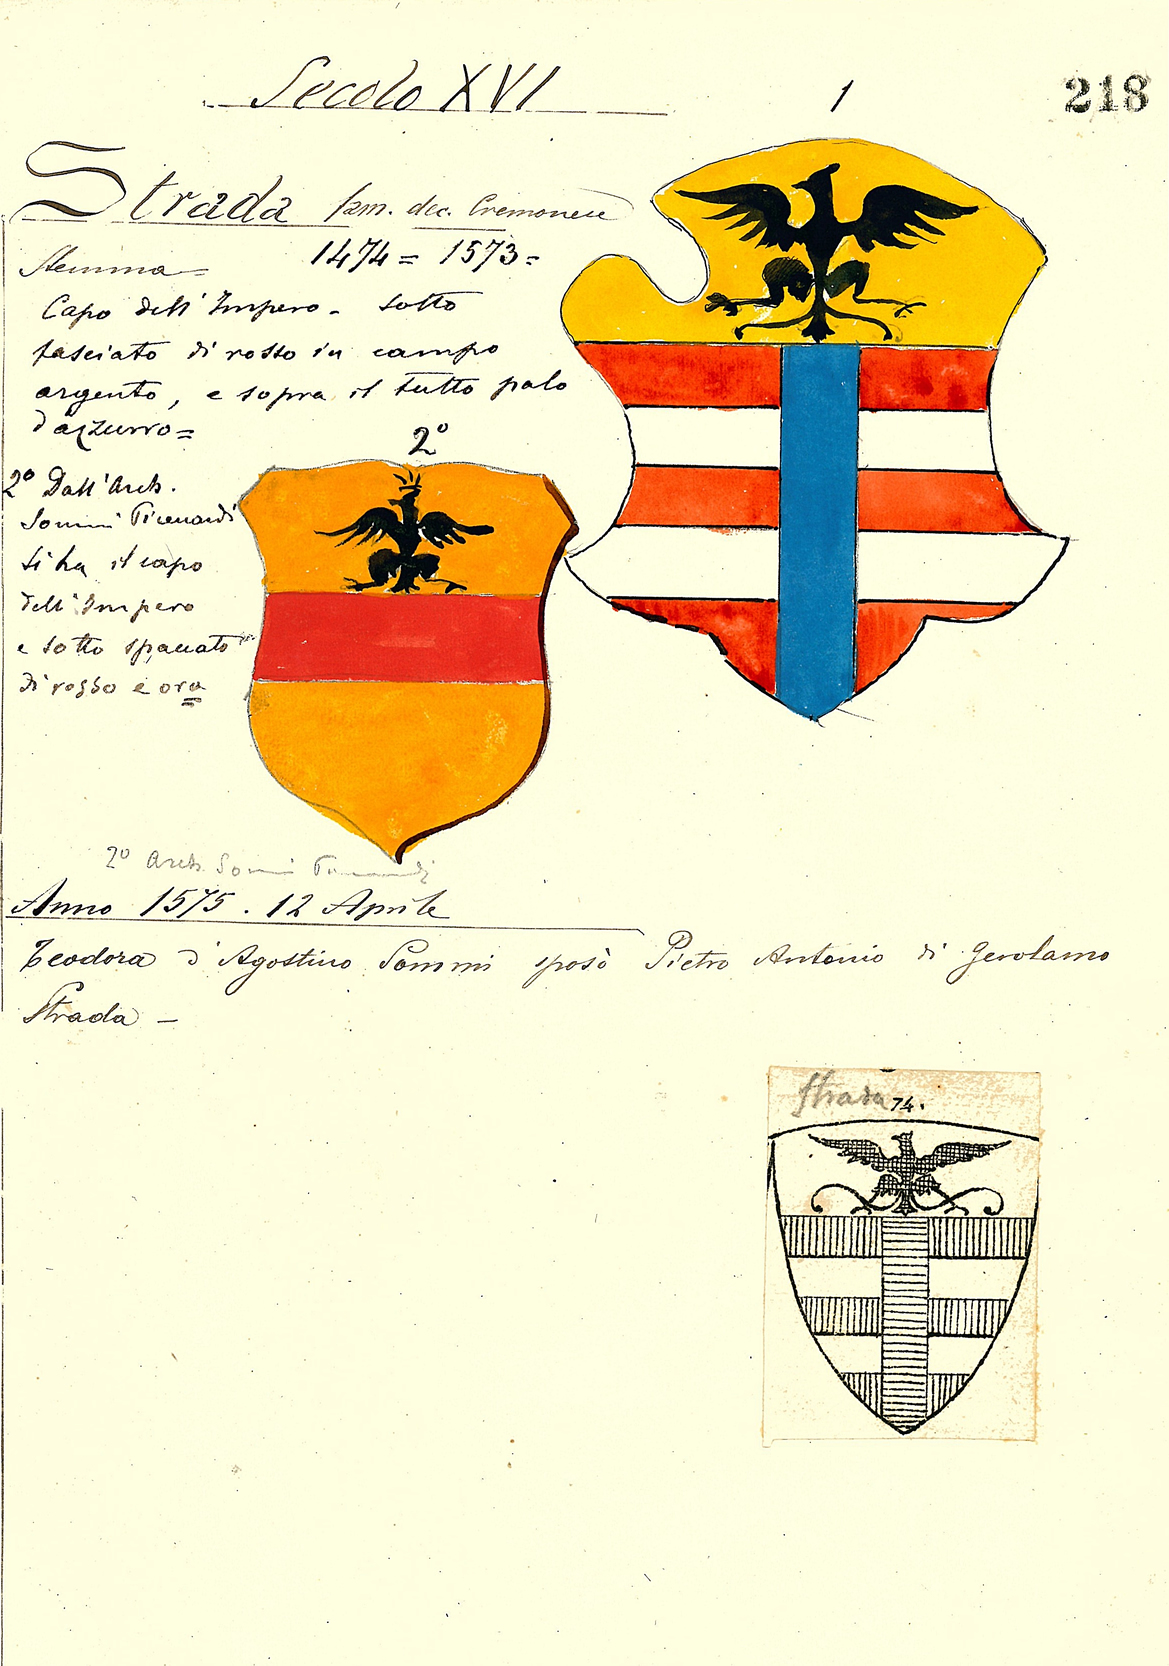 Secolo XVI
1
218
Strada fam. dec. Cremonese
1474 = 1573 =
Stemma =
Capo dell' Impero - Sotto
fasciato di rosso in campo
argento, e sopra il tutto palo
d'azzurro =
2º
2º Dall' Arch.
Sommi Picenardi
si ha il capo
dell' Impero
e sotto spaccato
di rosso e oro
2º Arch. Sommi Picenardi
Anno 1575 . 12 Aprile
Teodora d'Agostino Sommi sposò Pietro Antonio di Gerolamo
Strada -
Strada 74.